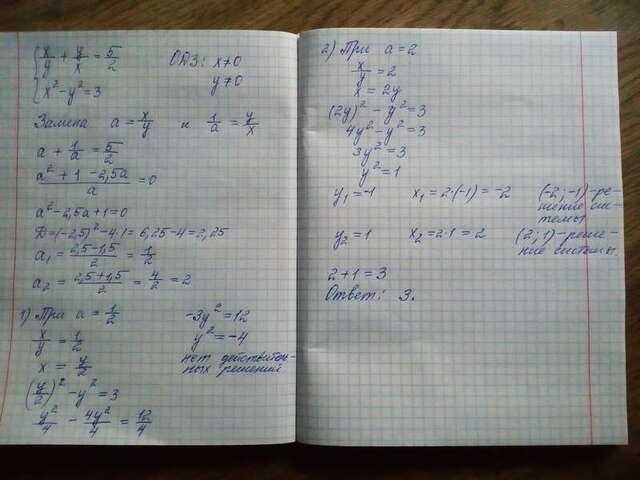 x/y + y/x = 5/2   ОДЗ: x≠0
x² - y² = 3   y≠0
Замена a = x/y и 1/a = y/x
a + 1/a = 5/2
(a² + 1 - 2,5a)/a = 0
a² - 2,5a + 1 = 0
D = (-2,5)² - 4·1 = 6,25 - 4 = 2,25
a₁ = (2,5 - 1,5)/2 = 1/2
a₂ = (2,5 + 1,5)/2 = 4/2 = 2
1) При a = 1/2
x/y = 1/2
x = y/2
(y/2)² - y² = 3
y²/4 - 4y²/4 = 12/4
-3y² = 12
y² = -4
нет действитель-
ных решений
2) При a = 2
x/y = 2
x = 2y
(2y)² - y² = 3
4y² - y² = 3
3y² = 3
y² = 1
y₁ = -1   x₁ = 2·(-1) = -2   (-2; -1) - ре-
шение сис-
темы
y₂ = 1   x₂ = 2·1 = 2   (2; 1) - реше-
ние системы.
2 + 1 = 3
Ответ: 3.